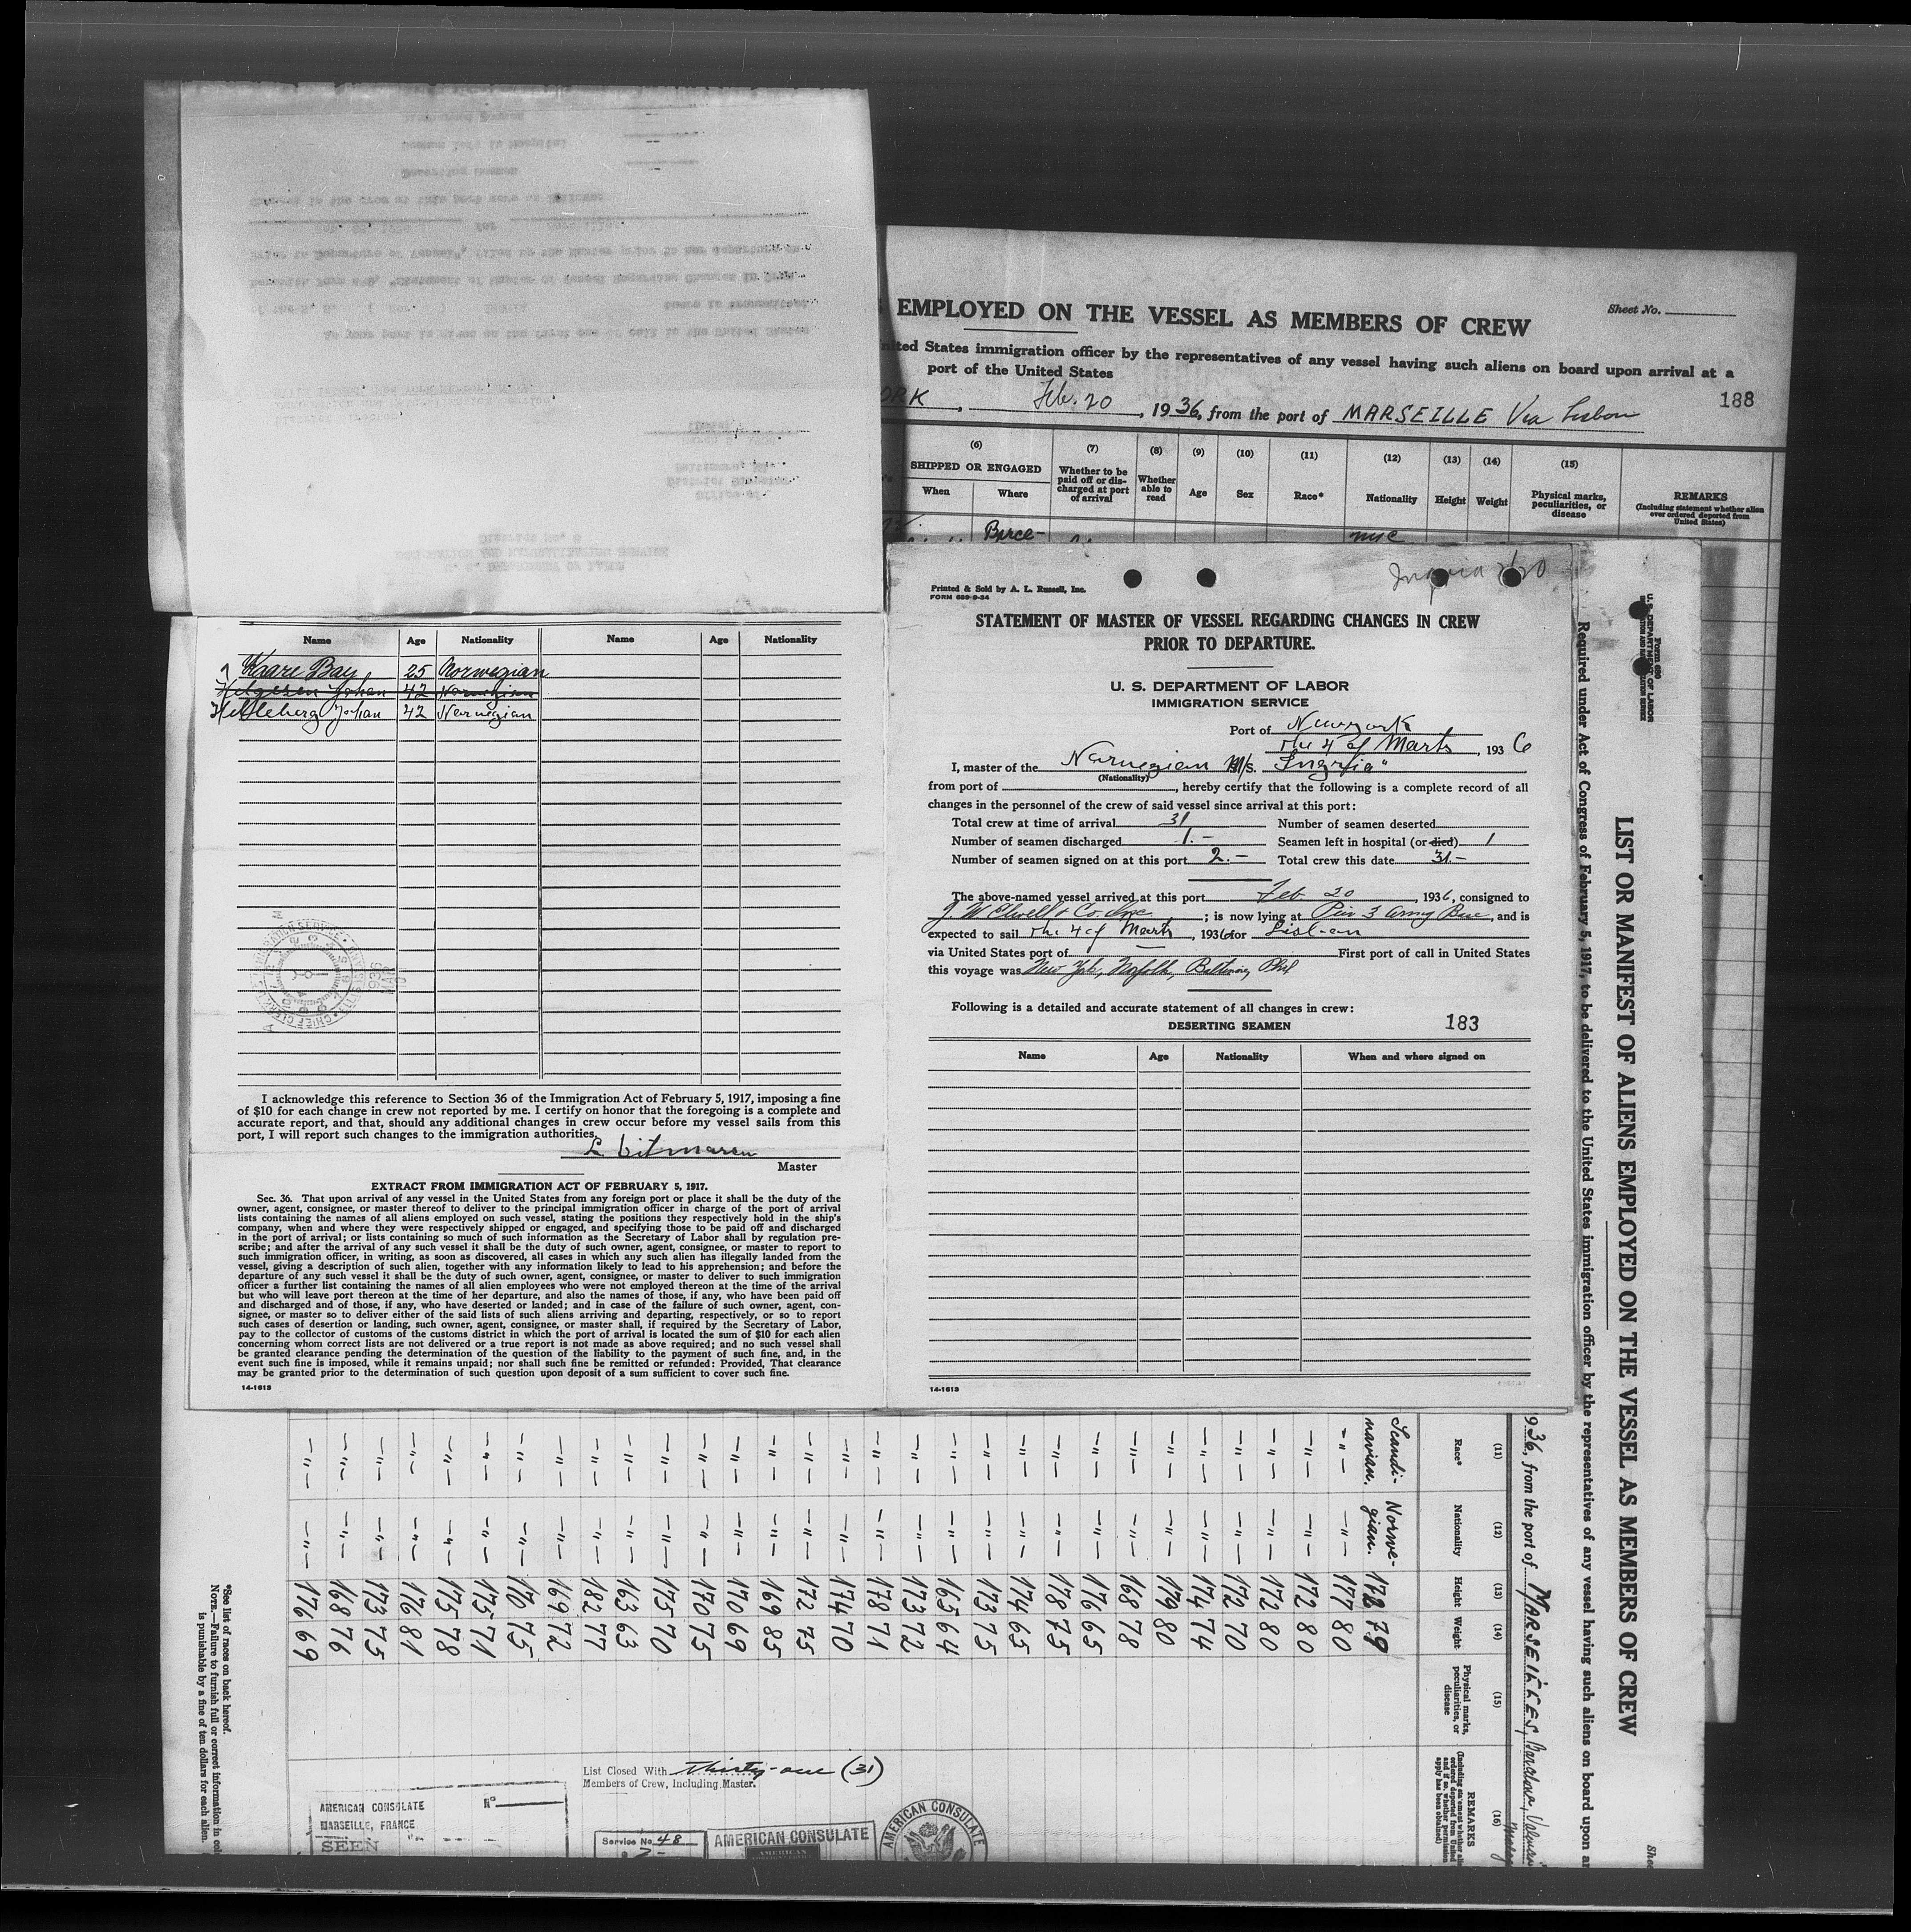 EMPLOYED ON THE VESSEL AS MEMBERS OF CREW
Sheet No.
United States immigration officer by the representatives of any vessel having such aliens on board upon arrival at a
port of the United States
188
ORK, Feb. 20, 1936, from the port of MARSEILLE Via Lisbon
(6) (7) (8) (9) (10) (11) (12) (13) (14) (15)
SHIPPED OR ENGAGED
When Where
Whether to be paid off or discharged at port of arrival
Whether able to read
Age Sex Race* Nationality Height Weight
Physical marks, peculiarities, or disease
REMARKS
(Including statement whether alien ever ordered deported from United States)
Barce-
Name Age Nationality Name Age Nationality
Kaare Bay 25 Norwegian
Helgesen Johan 42 Norwegian
Hetleberg Johan 42 Norwegian
I acknowledge this reference to Section 36 of the Immigration Act of February 5, 1917, imposing a fine
of $10 for each change in crew not reported by me. I certify on honor that the foregoing is a complete and
accurate report, and that, should any additional changes in crew occur before my vessel sails from this
port, I will report such changes to the immigration authorities.
Master
EXTRACT FROM IMMIGRATION ACT OF FEBRUARY 5, 1917.
Sec. 36. That upon arrival of any vessel in the United States from any foreign port or place it shall be the duty of the
owner, agent, consignee, or master thereof to deliver to the principal immigration officer in charge of the port of arrival
lists containing the names of all aliens employed on such vessel, stating the positions they respectively hold in the ship's
company, when and where they were respectively shipped or engaged, and specifying those to be paid off and discharged
in the port of arrival; or lists containing so much of such information as the Secretary of Labor shall by regulation pre-
scribe; and after the arrival of any such vessel it shall be the duty of such owner, agent, consignee, or master to report to
such immigration officer, in writing, as soon as discovered, all cases in which any such alien has illegally landed from the
vessel, giving a description of such alien, together with any information likely to lead to his apprehension; and before the
departure of any such vessel it shall be the duty of such owner, agent, consignee, or master to deliver to such immigration
officer a further list containing the names of all alien employees who were not employed thereon at the time of the arrival
but who will leave port thereon at the time of her departure, and also the names of those, if any, who have been paid off
and discharged and of those, if any, who have deserted or landed; and in case of the failure of such owner, agent, con-
signee, or master so to deliver either of the said lists of such aliens arriving and departing, respectively, or so to report
such cases of desertion or landing, such owner, agent, consignee, or master shall, if required by the Secretary of Labor,
pay to the collector of customs of the customs district in which the port of arrival is located the sum of $10 for each alien
concerning whom correct lists are not delivered or a true report is not made as above required; and no such vessel shall
be granted clearance pending the determination of the question of the liability to the payment of such fine, and, in the
event such fine is imposed, while it remains unpaid; nor shall such fine be remitted or refunded: Provided, That clearance
may be granted prior to the determination of such question upon deposit of a sum sufficient to cover such fine.
14-1613
Printed & Sold by A. L. Russell, Inc.
FORM 689-9-34
STATEMENT OF MASTER OF VESSEL REGARDING CHANGES IN CREW
PRIOR TO DEPARTURE.
U. S. DEPARTMENT OF LABOR
IMMIGRATION SERVICE
Port of Newyork
the 4 of Marts, 1936
I, master of the Norwegian M/S. "Ingria"
(Nationality)
from port of , hereby certify that the following is a complete record of all
changes in the personnel of the crew of said vessel since arrival at this port:
Total crew at time of arrival 31 Number of seamen deserted
Number of seamen discharged 1.- Seamen left in hospital (or died) 1
Number of seamen signed on at this port 2.- Total crew this date 31.-
The above-named vessel arrived at this port Feb 20 1936, consigned to
J. W. Elwell & Co. Inc ; is now lying at Pier 3 Army Base, and is
expected to sail the 4 of Marts, 1936 for Lisboan
via United States port of — First port of call in United States
this voyage was New York, Norfolk, Baltimore, Phil
Following is a detailed and accurate statement of all changes in crew:
DESERTING SEAMEN 183
Name Age Nationality When and where signed on
14-1613
Form 680
U. S. DEPARTMENT OF LABOR
LIST OR MANIFEST OF ALIENS EMPLOYED ON THE VESSEL AS MEMBERS OF CREW
Required under Act of Congress of February 5, 1917, to be delivered to the United States immigration officer by the representatives of any vessel having such aliens on board upon ar
936, from the port of MARSEILLES, Barcelona, Valencia
(11) (12) (13) (14) (15) (16)
Race* Nationality Height Weight
Physical marks, peculiarities, or disease
REMARKS
Scandinavian. Norwegian. 172 79
-"- -"- 177 80
-"- -"- 172 80
-"- -"- 172 80
-"- -"- 172 70
-"- -"- 174 74
-"- -"- 179 80
-"- -"- 168 78
-"- -"- 176 65
-"- -"- 178 75
-"- -"- 174 65
-"- -"- 173 75
-"- -"- 165 64
-"- -"- 173 72
-"- -"- 178 71
-"- -"- 174 70
-"- -"- 172 75
-"- -"- 169 85
-"- -"- 170 69
-"- -"- 170 75
-"- -"- 175 70
-"- -"- 163 63
-"- -"- 182 77
-"- -"- 169 72
-"- -"- 170 75
-"- -"- 175 71
-"- -"- 175 78
-"- -"- 176 81
-"- -"- 173 75
-"- -"- 168 76
-"- -"- 176 69
List Closed With Thirty-one (31)
Members of Crew, Including Master.
AMERICAN CONSULATE Nº
MARSEILLE, FRANCE
SEEN
Service No. 48
AMERICAN CONSULATE
AMERICAN CONSULATE
*See list of races on back hereof.
NOTE.—Failure to furnish full or correct information in col
is punishable by a fine of ten dollars for each alien.